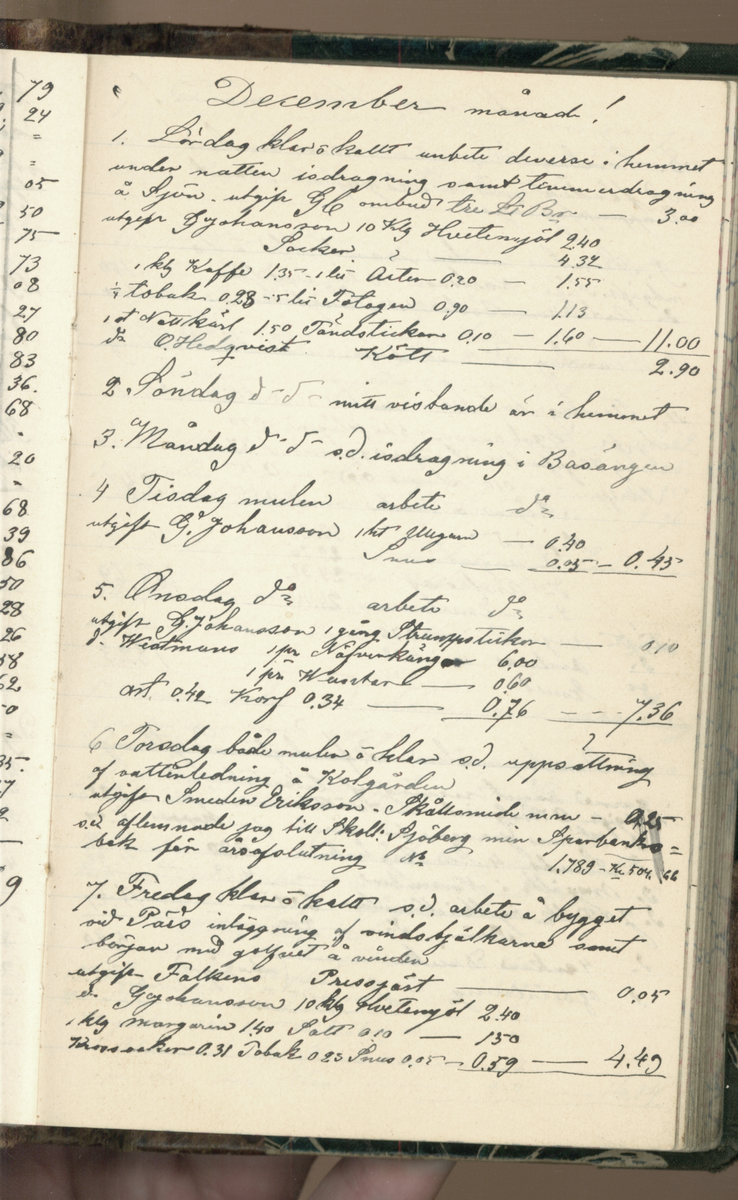 79
24
=
=
05
50
75
73
08
27
80
83
36.
68
20
68
39
86
50
28
26
58
62
December månad!
1. Lördag klar o kallt arbete diverse i hemmet
under natten isdragning samt timmerdragning
å Sjön. utgift Gl ombud tre Lt Br — 3.00
utgift G Johansson 10 Klg Hvetemjöl 2.40
Socker " — 4.32
1 klg Kaffe 1.35 - 1 lit Ärter 0.20 — 1.55
tobak 0.28 - 5 lit Fotogen 0.90 — 1.13
1 st Nattkärl 1.50 Tändstickor 0.10 — 1.60 — 11.00
do O. Hedqvist Kött — 2.90
2. Söndag d - d - mitt visbande är i hemmet
3. Måndag d - d - s.d. isdragning i Basängen
4 Tisdag mulen arbete do
utgift G. Johansson 1 ht — 0.40
Snus — 0.05 — 0.45
5. Onsdag do arbete do
utgift G. Johansson 1 gång Strumpstickor — 0.10
d. Westmans 1 pr Näfverkängor 6.00
1 pr — 0.60
ärt. 0.42 Korf 0.34 — 0.76 - - - 7.36
6 Torsdag både mulen o klar s.d. uppsättning
af vattenledning å Kolgården
utgift Smeden Eriksson - mm — 0.25
s.d. aflemnade jag till Skoll: Sjöberg min Sparbanks=
bok för årsafslutning No 1.789 - Kr. 504. 66
7. Fredag klar o kallt s.d. arbete å bygget
vid Pärs inläggning af vindsbjälkarne samt
början med golfvet å vinden
utgift Falkens Pressjäst — 0.05
d. G Johansson 10 klg Hvetemjöl 2.40
1 klg margarin 1.40 Salt 0.10 — 1.50
Krossocker 0.31 Tobak 0.23 Snus 0.05 — 0.59 — 4.49